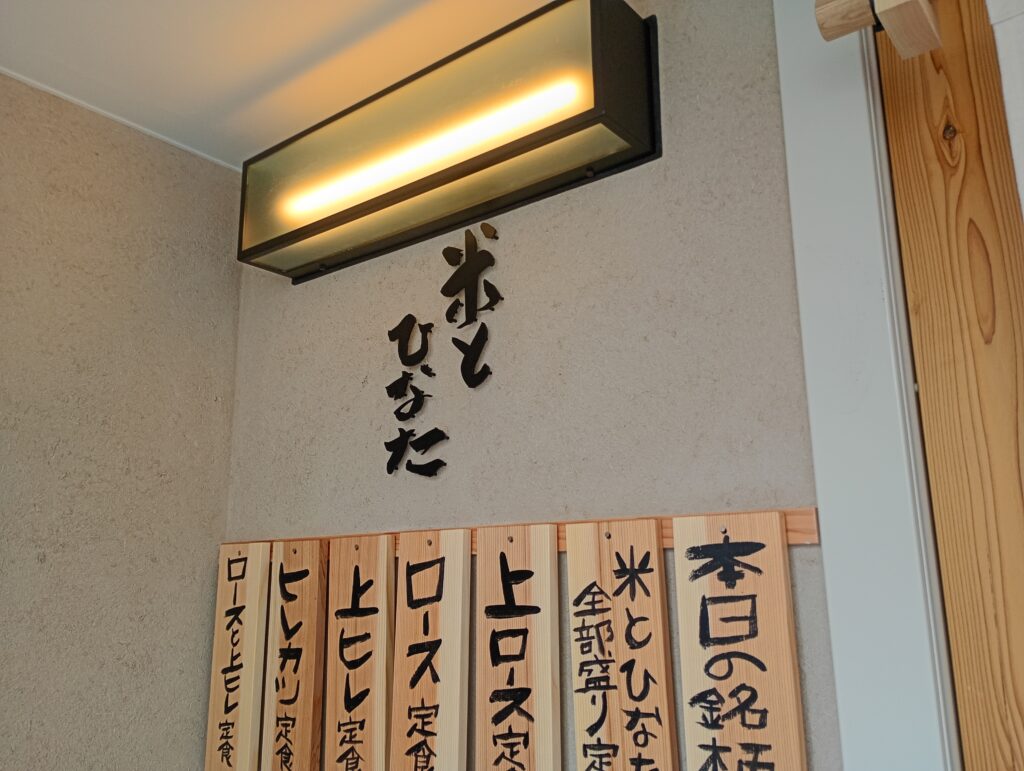 米と
ひなた
本日の銘柄
米とひなた
全部盛り定
上ロース定
ロース定食
上ヒレ定食
ヒレカツ定食
ロースと上ヒレ定食